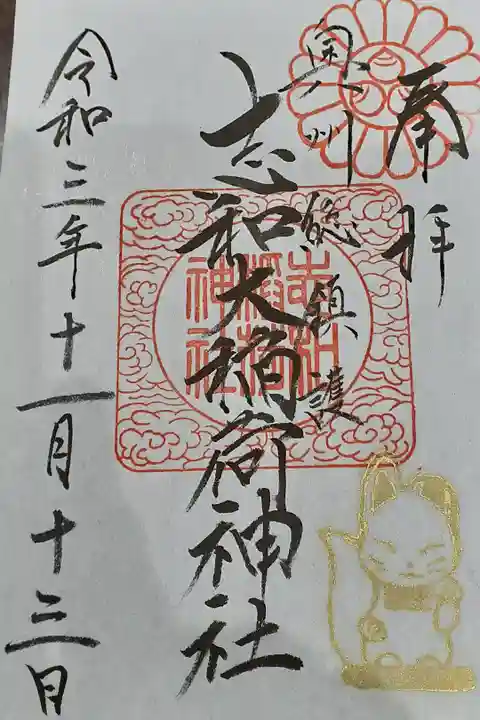 奉拝
奥州総鎮護
志和大稲荷神社
志和稲荷神社
令和三年十一月十三日